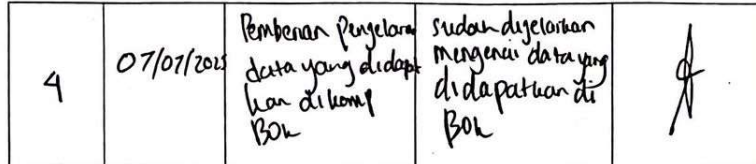 4
07/07/2025
Pemberian Penjelasan
data yang didapat
kan di komp
BOK
sudah dijelaskan
mengenai data yang
didapatkan di
BOK